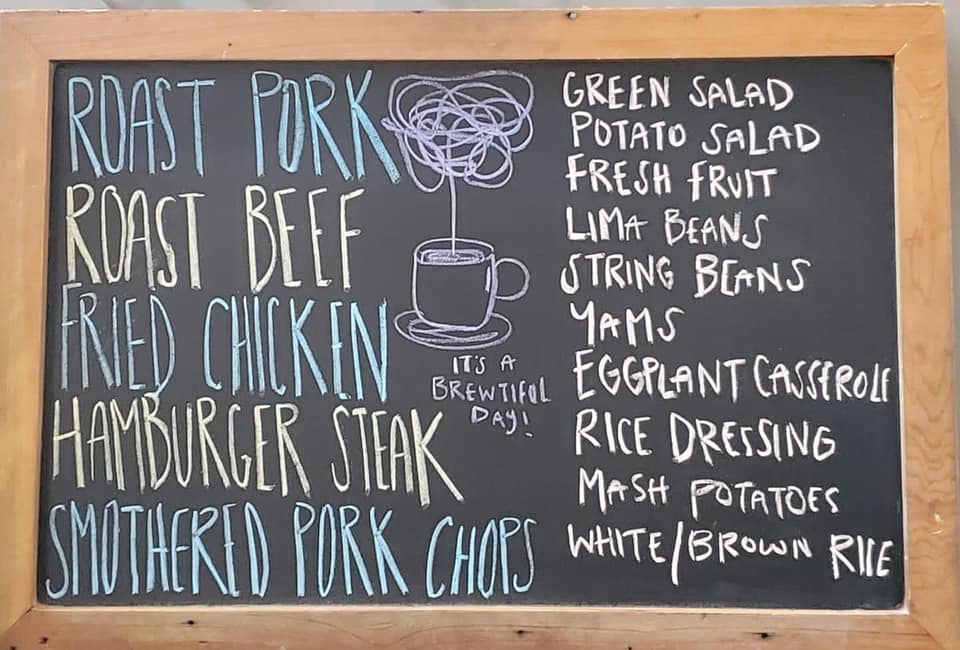 ROAST PORK
ROAST BEEF
FRIED CHICKEN
HAMBURGER STEAK
SMOTHERED PORK CHOPS
IT'S A
BREWTIFUL
DAY!
GREEN SALAD
POTATO SALAD
FRESH FRUIT
LIMA BEANS
STRING BEANS
YAMS
EGGPLANT CASSEROLE
RICE DRESSING
MASH POTATOES
WHITE/BROWN RICE